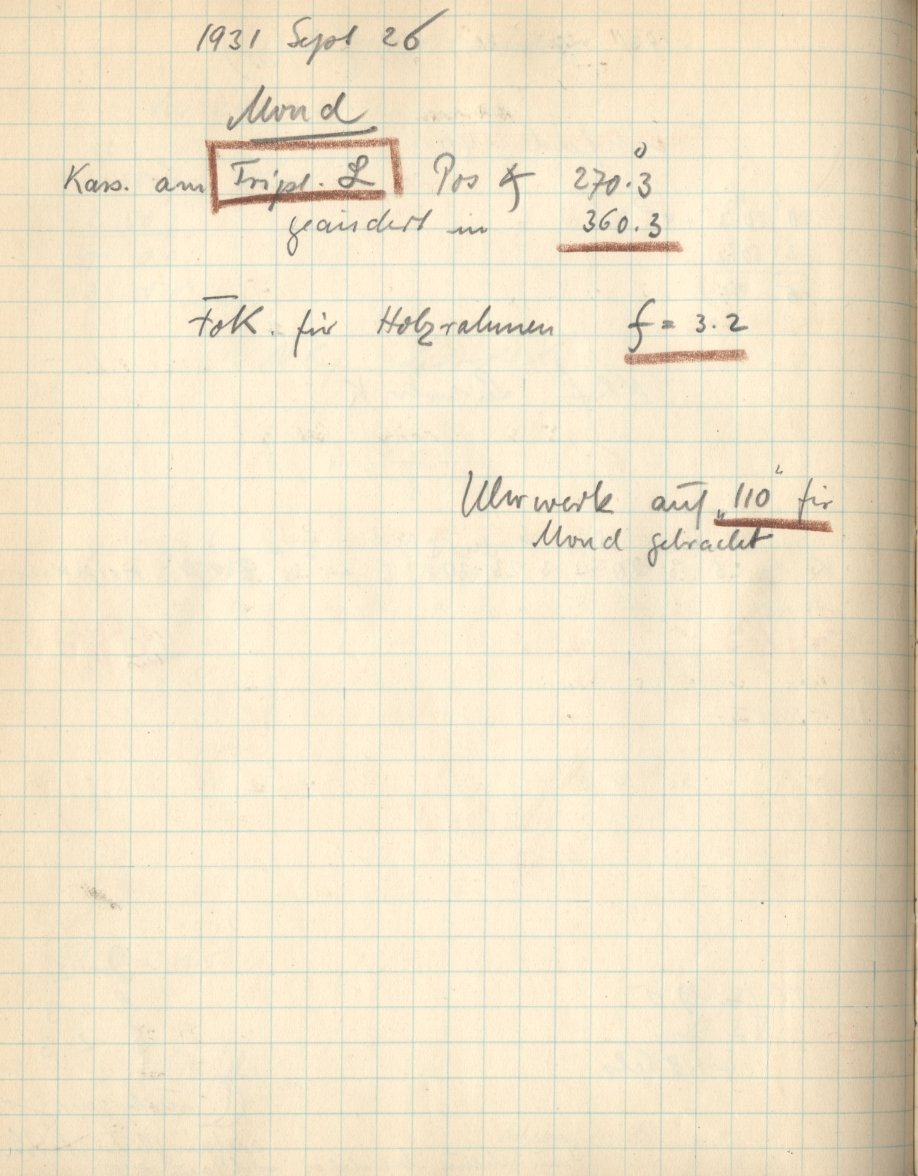 1931 Sept 26
Mond
Kass. am Tripl. L Pos ∡ 270.3°
geändert in 360.3
Fok. für Holzrahmen f = 3.2
Uhrwerk auf „110“ für
Mond gebracht